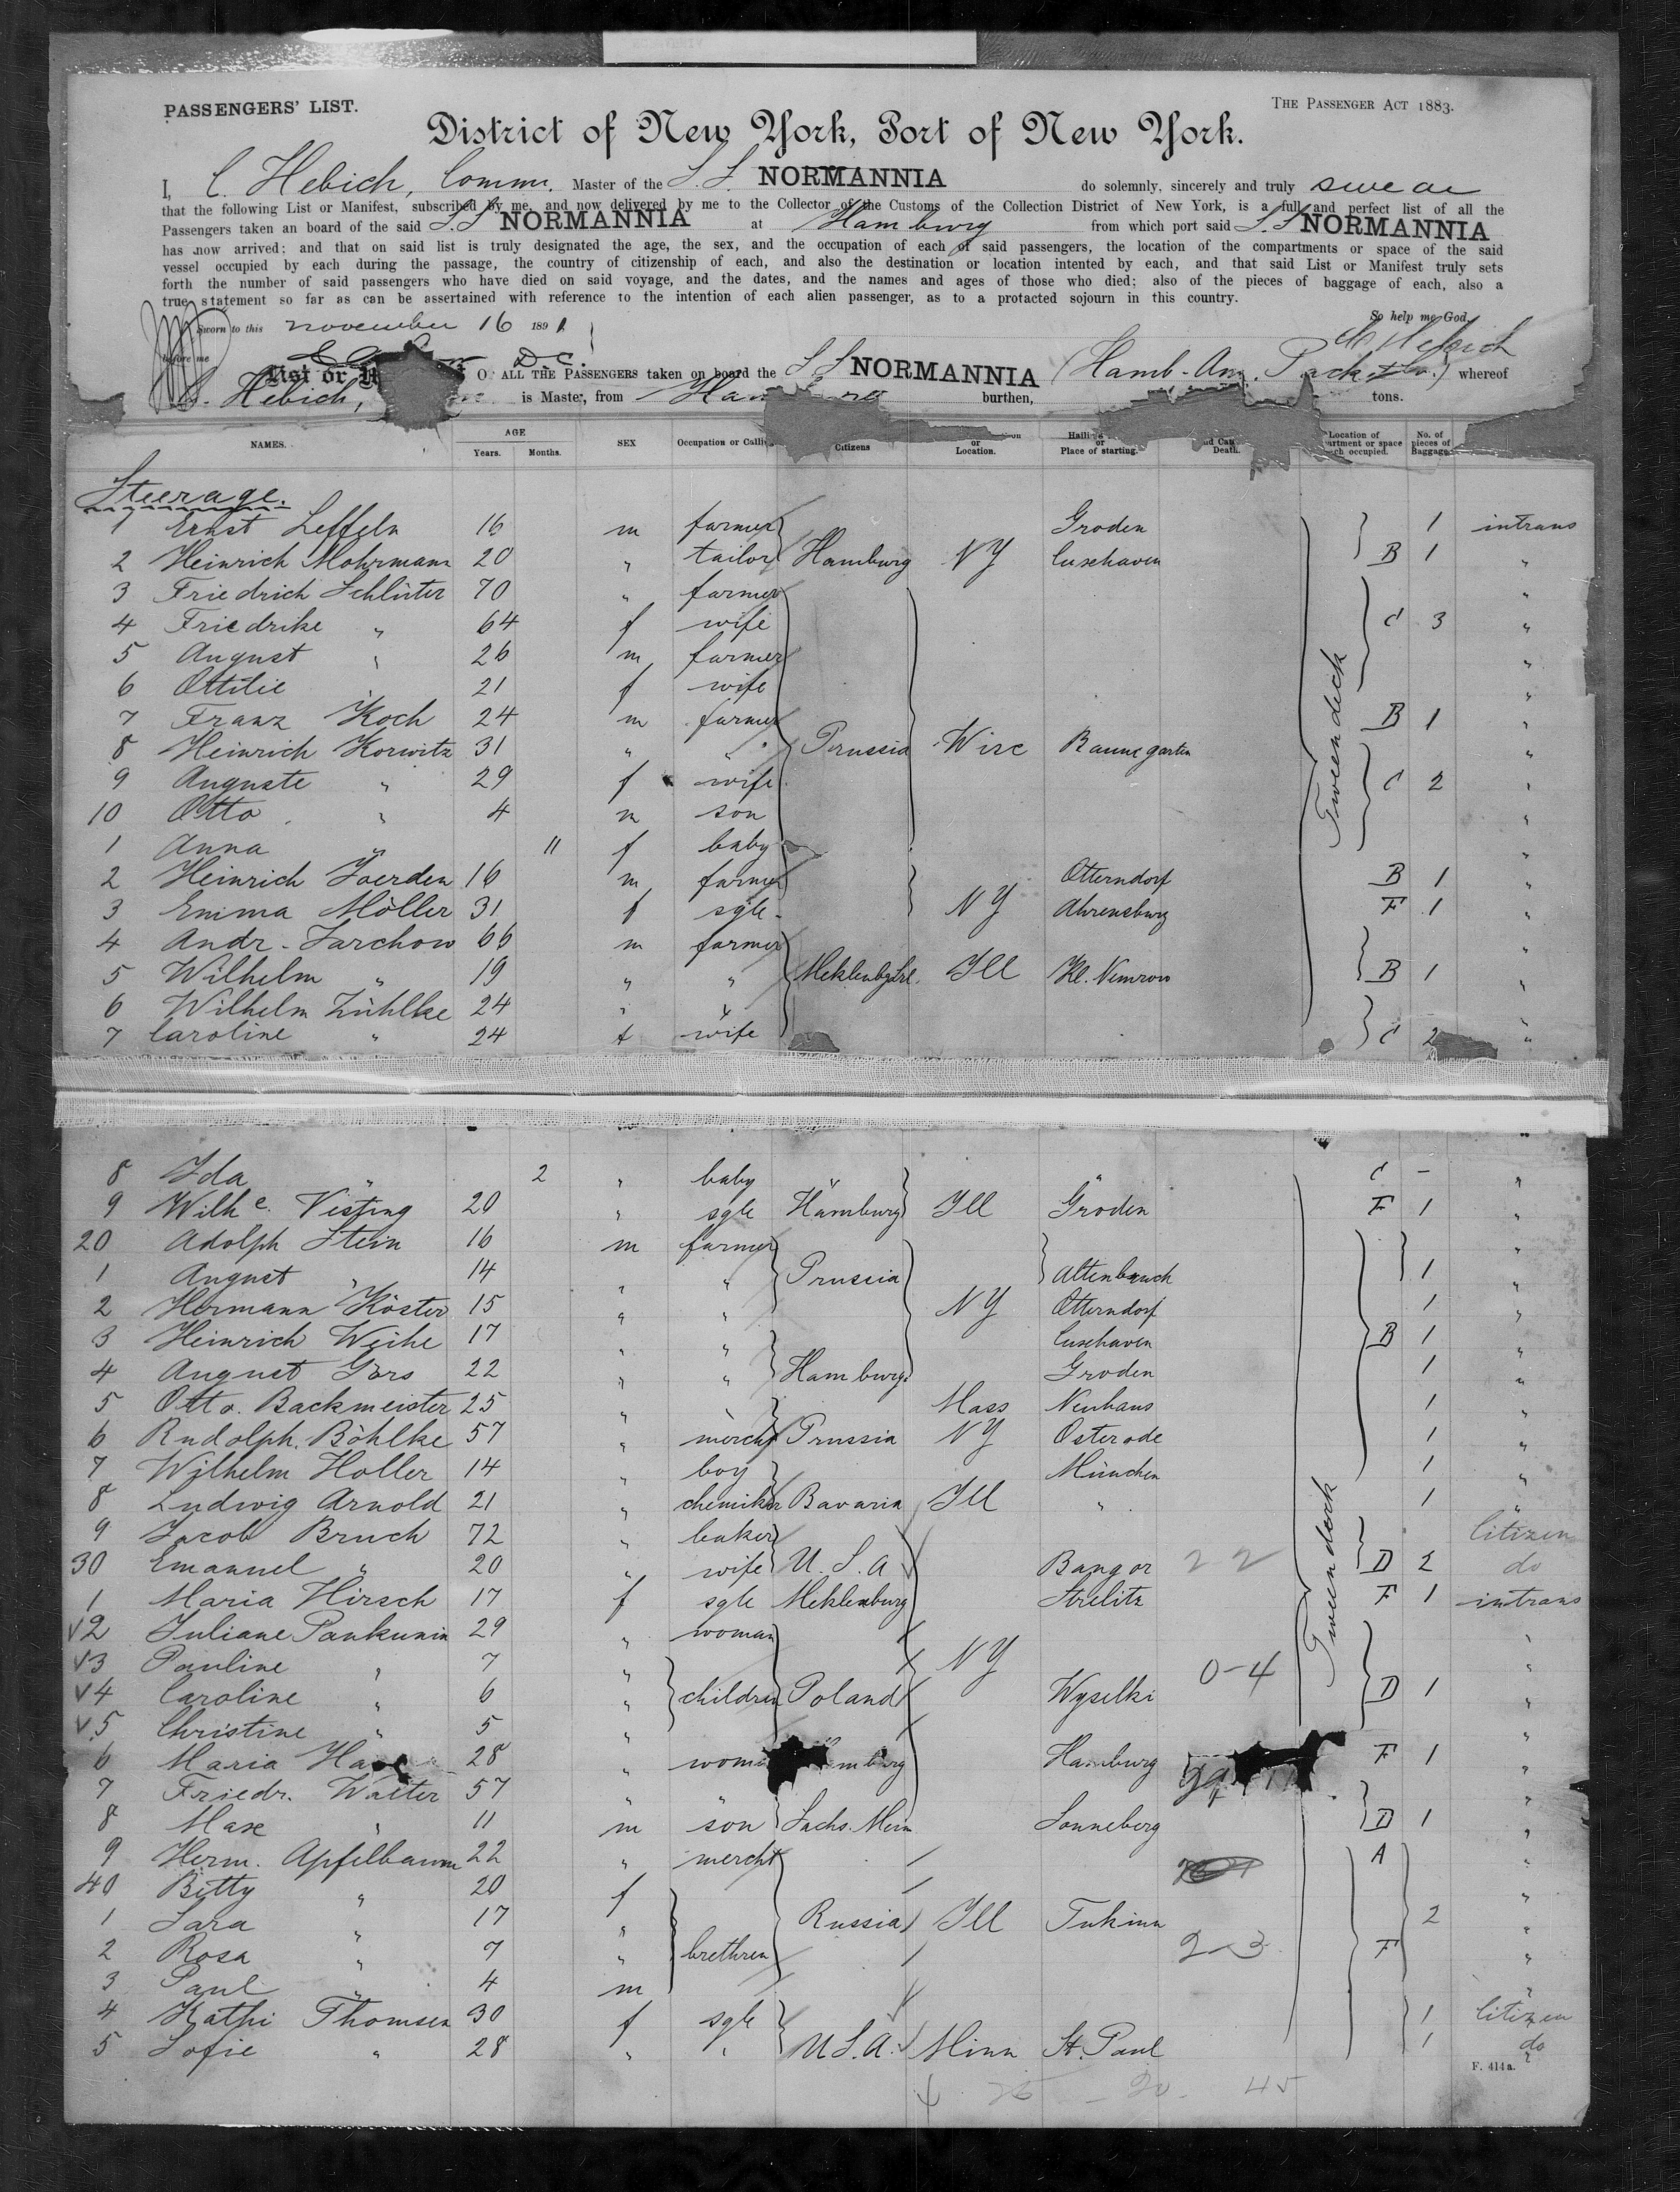 PASSENGERS' LIST.
THE PASSENGER ACT 1883.
District of New York, Port of New York.
I, C. Hebich, Comm. Master of the S.S. NORMANNIA do solemnly, sincerely and truly swear
that the following List or Manifest, subscribed by me, and now delivered by me to the Collector of the Customs of the Collection District of New York, is a full and perfect list of all the
Passengers taken an board of the said S.S NORMANNIA at Hamburg from which port said S.S NORMANNIA
has now arrived; and that on said list is truly designated the age, the sex, and the occupation of each of said passengers, the location of the compartments or space of the said
vessel occupied by each during the passage, the country of citizenship of each, and also the destination or location intented by each, and that said List or Manifest truly sets
forth the number of said passengers who have died on said voyage, and the dates, and the names and ages of those who died; also of the pieces of baggage of each, also a
true statement so far as can be assertained with reference to the intention of each alien passenger, as to a protacted sojourn in this country.
Sworn to this november 16 1891 So help me God.
before me D.C. C Hebich
List or OF ALL THE PASSENGERS taken on board the SS NORMANNIA (Hamb-Am. Pack. Co.) whereof
C. Hebich, is Master, from burthen, tons.
NAMES. AGE Years. Months. SEX Occupation or Citizens or Location. or Place of starting. Death. Location of occupied. No. of pieces of Baggage
Steerage.
1 Ernst Leffeln 16 m farmer Groden 1 intrans
2 Heinrich Mohrmann 20 " tailor Hamburg NY Cuxhaven B 1 "
3 Friedrich Schlüter 70 " farmer "
4 Friedrike " 64 f wife C 3 "
5 August " 26 m farmer "
6 Ottilie " 21 f wife "
7 Franz Koch 24 m farmer B 1 "
8 Heinrich Korwitz 31 " " Prussia Wisc Baumgarten "
9 Auguste " 29 f wife C 2 "
10 Otto " 4 m son "
1 Anna " 11 f baby "
2 Heinrich Joerden 16 m farmer Otterndorf B 1 "
3 Emma Möller 31 f sgle NY Ahrensburg F 1 "
4 Andr. Zarchow 66 m farmer "
5 Wilhelm " 19 " " Ill Kl. Nemrow B 1 "
6 Wilhelm Zühlke 24 " " "
7 Caroline " 24 f wife C 2 "
8 Ida " 2 " baby " " C - "
9 Wilhe. Visting 20 " sgle Hamburg Ill Groden F 1 "
20 Adolph Stein 16 m farmer "
1 August " 14 " " Prussia Altenbruch 1 "
2 Hermann Köster 15 " " NY Otterndorf 1 "
3 Heinrich Weihe 17 " " Cuxhaven B 1 "
4 August Görs 22 " " Hamburg Groden 1 "
5 Otto Backmeister 25 " " Mass Neuhaus 1 "
6 Rudolph Böhlke 57 " mercht Prussia NY Osterode 1 "
7 Wilhelm Holler 14 " boy München 1 "
8 Ludwig Arnold 21 " chemiker Bavaria Ill " 1 "
9 Jacob Bruch 72 " baker Citizen
30 Emanuel " 20 " wife U.S.A Bangor 22 D 2 do
1 Maria Hirsch 17 f sgle Meklenburg Strelitz F 1 intrans
√2 Juliane Pankunin 29 " woman "
√3 Pauline " 7 " NY 0-4 "
√4 Caroline " 6 " children Poland Wyselki D 1 "
√5 Christine " 5 " "
6 Maria 28 " Hamburg F 1 "
7 Friedr. Walter 57 " " "
8 Max " 11 m son Sachs. Mein Sonneberg D 1 "
9 Herm. Apfelbaum 22 " mercht A "
40 Betty " 20 f "
1 Sara " 17 " Russia Ill Tukinn 2 "
2 Rosa " 7 " brethren 2-3 F "
3 Paul " 4 m "
4 Kathi Thomsen 30 f sgle 1 Citizen
5 Sofie " 28 " " U.S.A. Minn St. Paul 1 do
Tween deck
Tween deck
F. 414a.